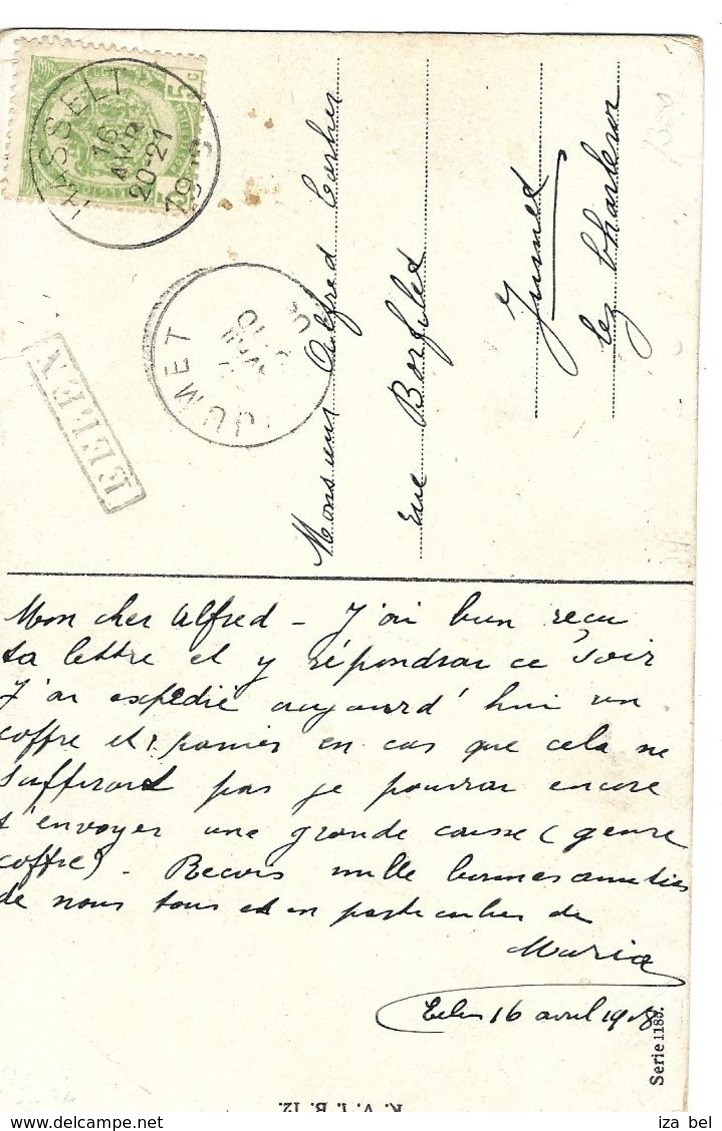 HASSELT
16
AVR
20-21
19
JUMET
EELEN
Monsieur Alfred
rue
Jumet
lez Charleroi
Mon cher Alfred – J'ai bien reçu
ta lettre et y répondrai ce soir
J'ai expédié aujourd'hui un
coffre et 1 panier en cas que cela ne
suffirait pas je pourrai encore
t'envoyer une grande caisse (genre
coffre) – Recois mille bonnes amitiés
de nous tous et en particulier de
Maria
Eelen 16 avril 1908
Serie 1189.
K. V. i. B. 12.
iza bel